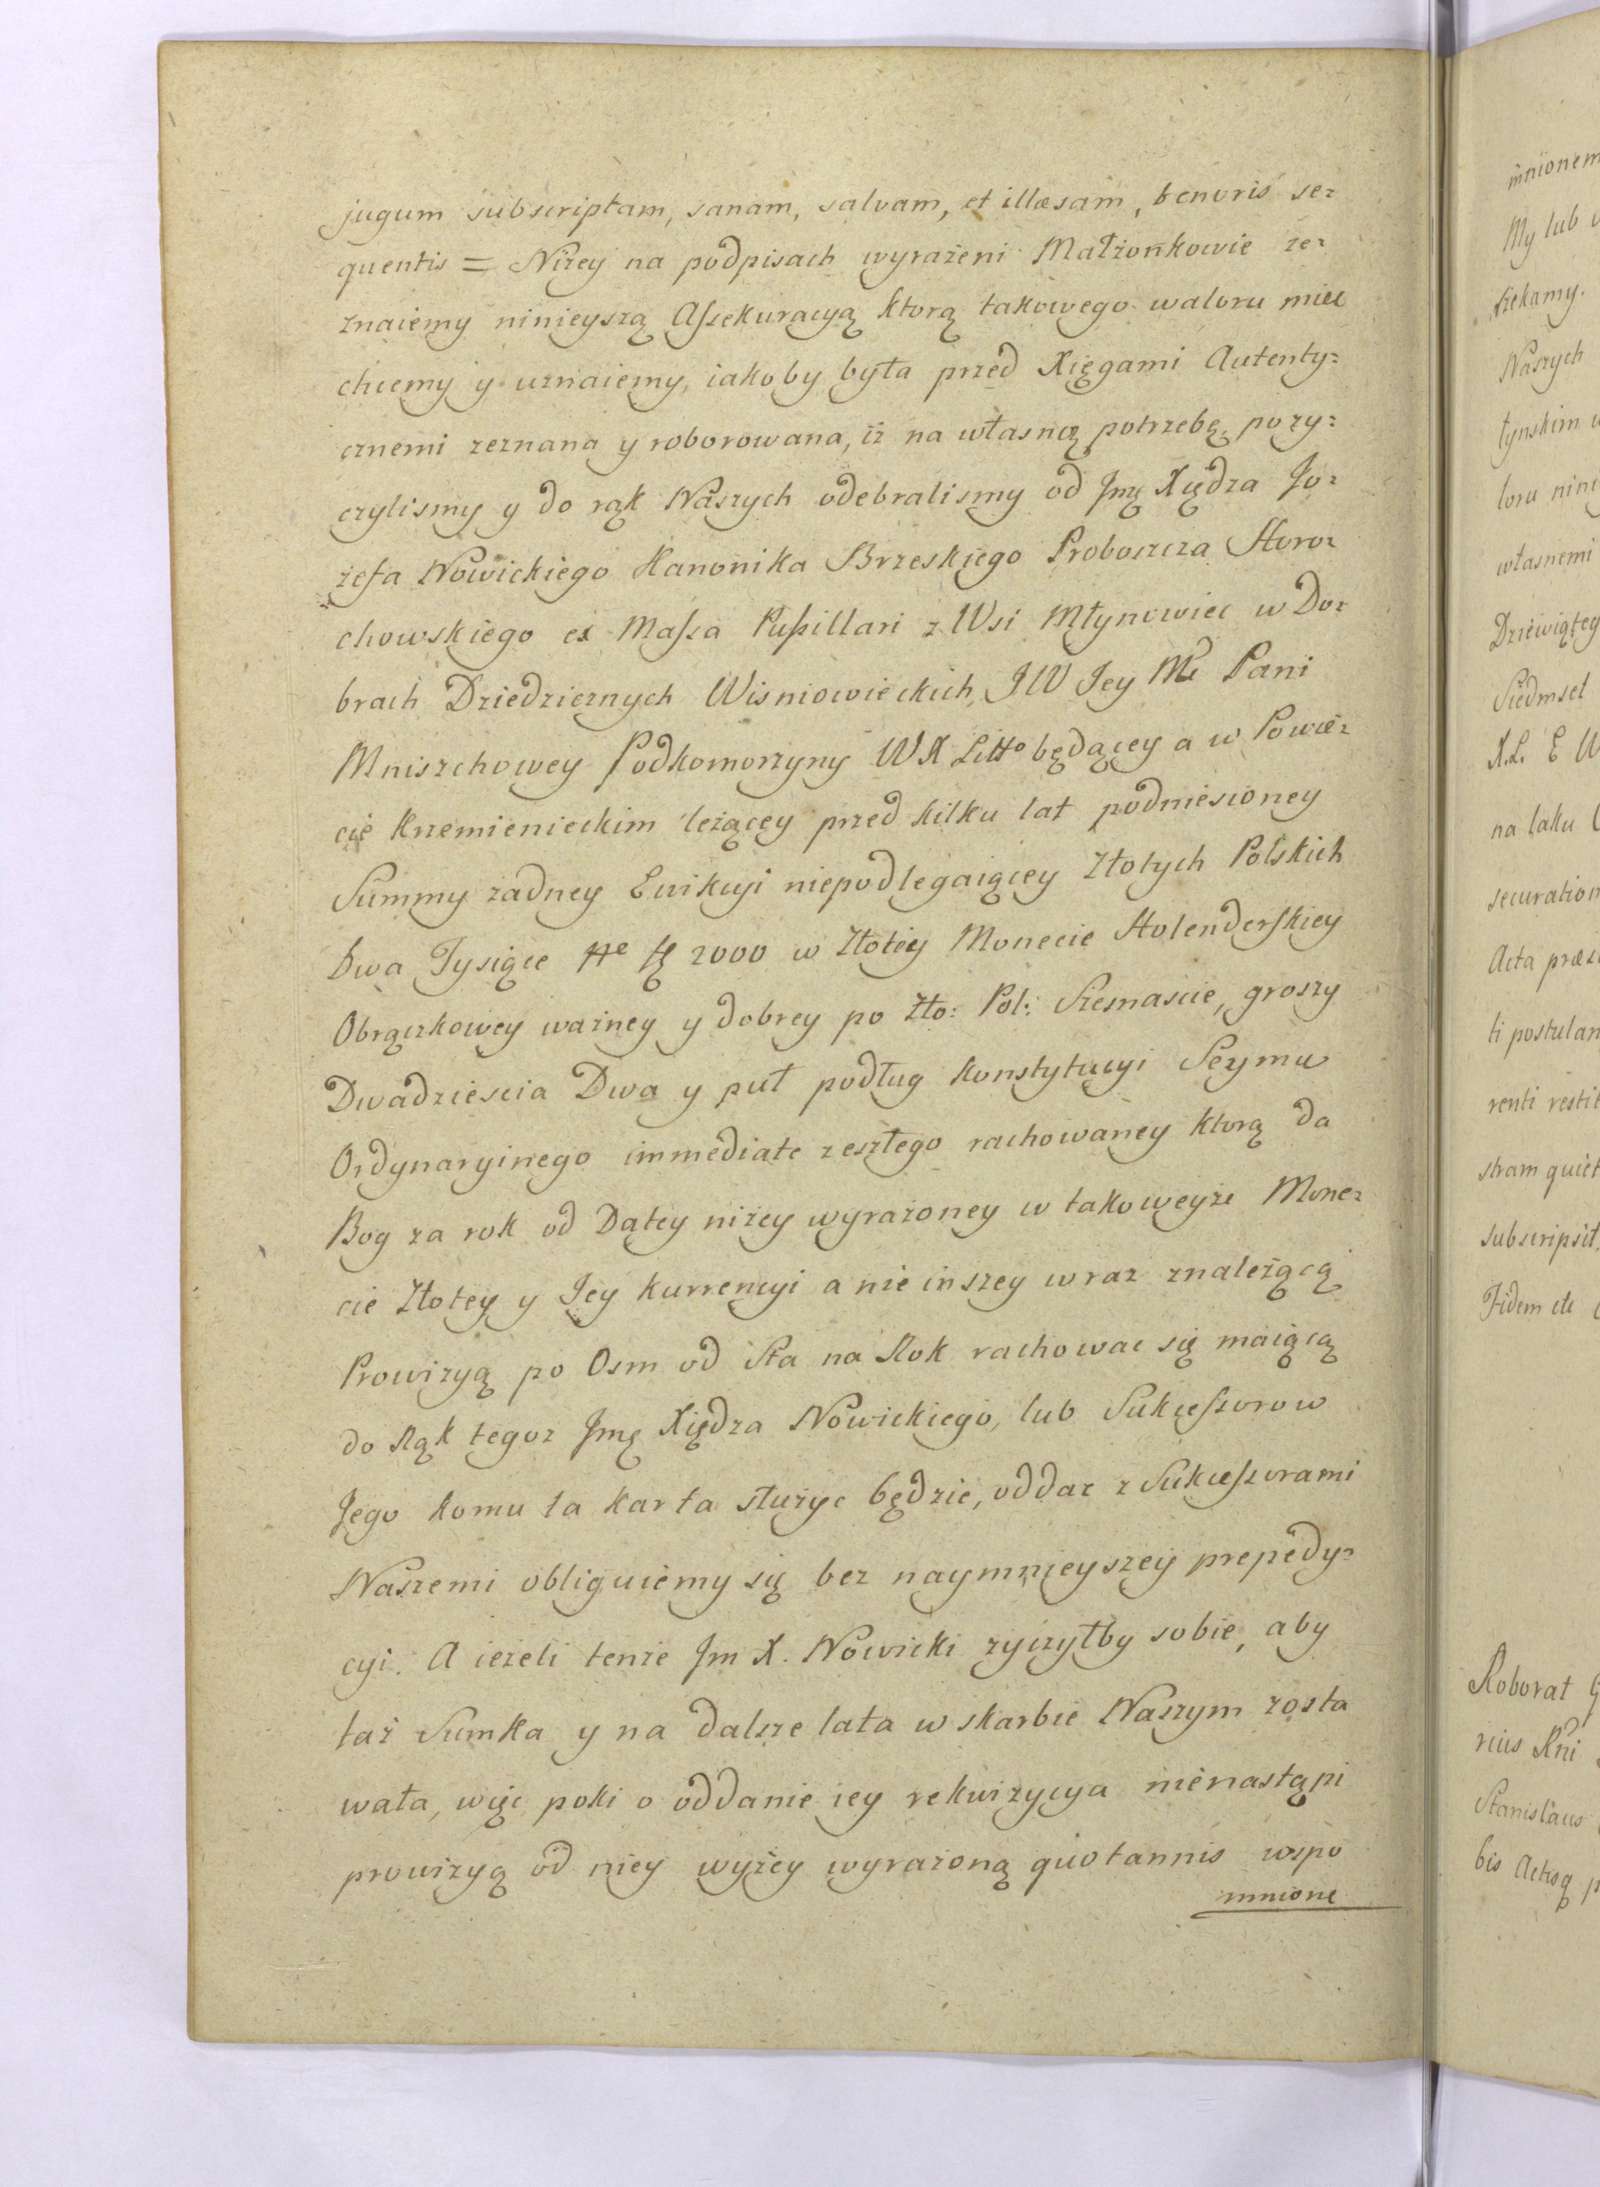 jugum subscriptam, sanam, salvam, et illæsam, tenoris se=
quentis = Niżey na podpisach wyrażeni Małżonkowie ze=
znaiemy ninieyszą Assekuracyą ktorą takowego waloru miec
chcemy y uznaiemy, iakoby była przed Xięgami Autenty=
cznemi zeznana y roborowana, iż na własną potrzebę, pozy=
czylismy y do rąk Naszych odebralismy od Jmę Xiędza Jo=
zefa Nowickiego Kanonika Brzeskiego Proboszcza Horo=
chowskiego ex Massa Pupillari z Wsi Młynowiec w Do=
brach Dziedzicznych Wisniowieckich, JW Jey Mć Pani
Mniszchowey Podkomorzyny WX Litto będącey a w Powie=
cie Krzemienieckim leżącey przed kilku lat podniesioney
Summy żadney Ewikcyi niepodlegaiącey Złotych Polskich
Dwa Tysiące 2000 w Złotey Monecie Holenderskiey
Obrączkowey ważney y dobrey po Zło: Pol: Szesnascie, groszy
Dwadziescia Dwa y puł podług Konstytucyi Seymu
Ordynaryinego immediate zeszłego rachowaney ktorą da
Bog za rok od Datey niżey wyrażoney w takoweyże Mone=
cie Złotey y Jey kurrencyi a nie inszey wraz znależącą
Prowizyą po Osm od Sta na Rok rachowac się maiącą
do Rąk tegoż Jmę Xiędza Nowickiego, lub Sukcessorow
Jego komu ta karta służyc będzie, oddac z Sukcessorami
Naszemi obliguiemy się bez naymnieyszey prepedy=
cyi. A ieżeli tenże Jm X. Nowicki zyczyłby sobie, aby
taż Sumka y na dalsze lata w skarbie Naszym zosta
wała, więc poki o oddanie iey rekwizycya nienastąpi
prowizyą od niey wyżey wyrażoną quotannis wspo
mnione
mnionem
My lub
rzekamy.
Naszych
tynskim
loru nini
własnemi
Dziewiątey
Siedmset
X.L. E W
na taku
securation
Acta præs
ti postulan
renti restit
stram quiet
subscripsit,
Fidem etc
Roborat
rius Rni
Stanislaus
bis Actisq